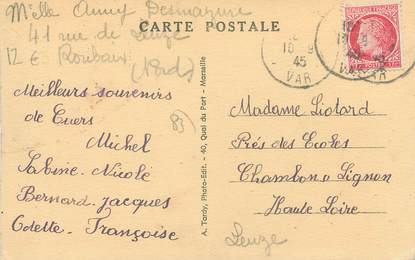 Mlle Anny Desmazure
41 rue de Leuze
12 € Roubaix
(Nord)
CARTE POSTALE
10
45
VAR
VAR
Meilleurs souvenirs
de Cuers
Michel
Sabine. Nicole
Bernard. Jacques
Odette. Françoise
A. Tardy, Photo-Edit. - 40, Quai du Port - Marseille
Madame Liotard
Près des Ecoles
Chambon s Lignon
Haute Loire
Leuze